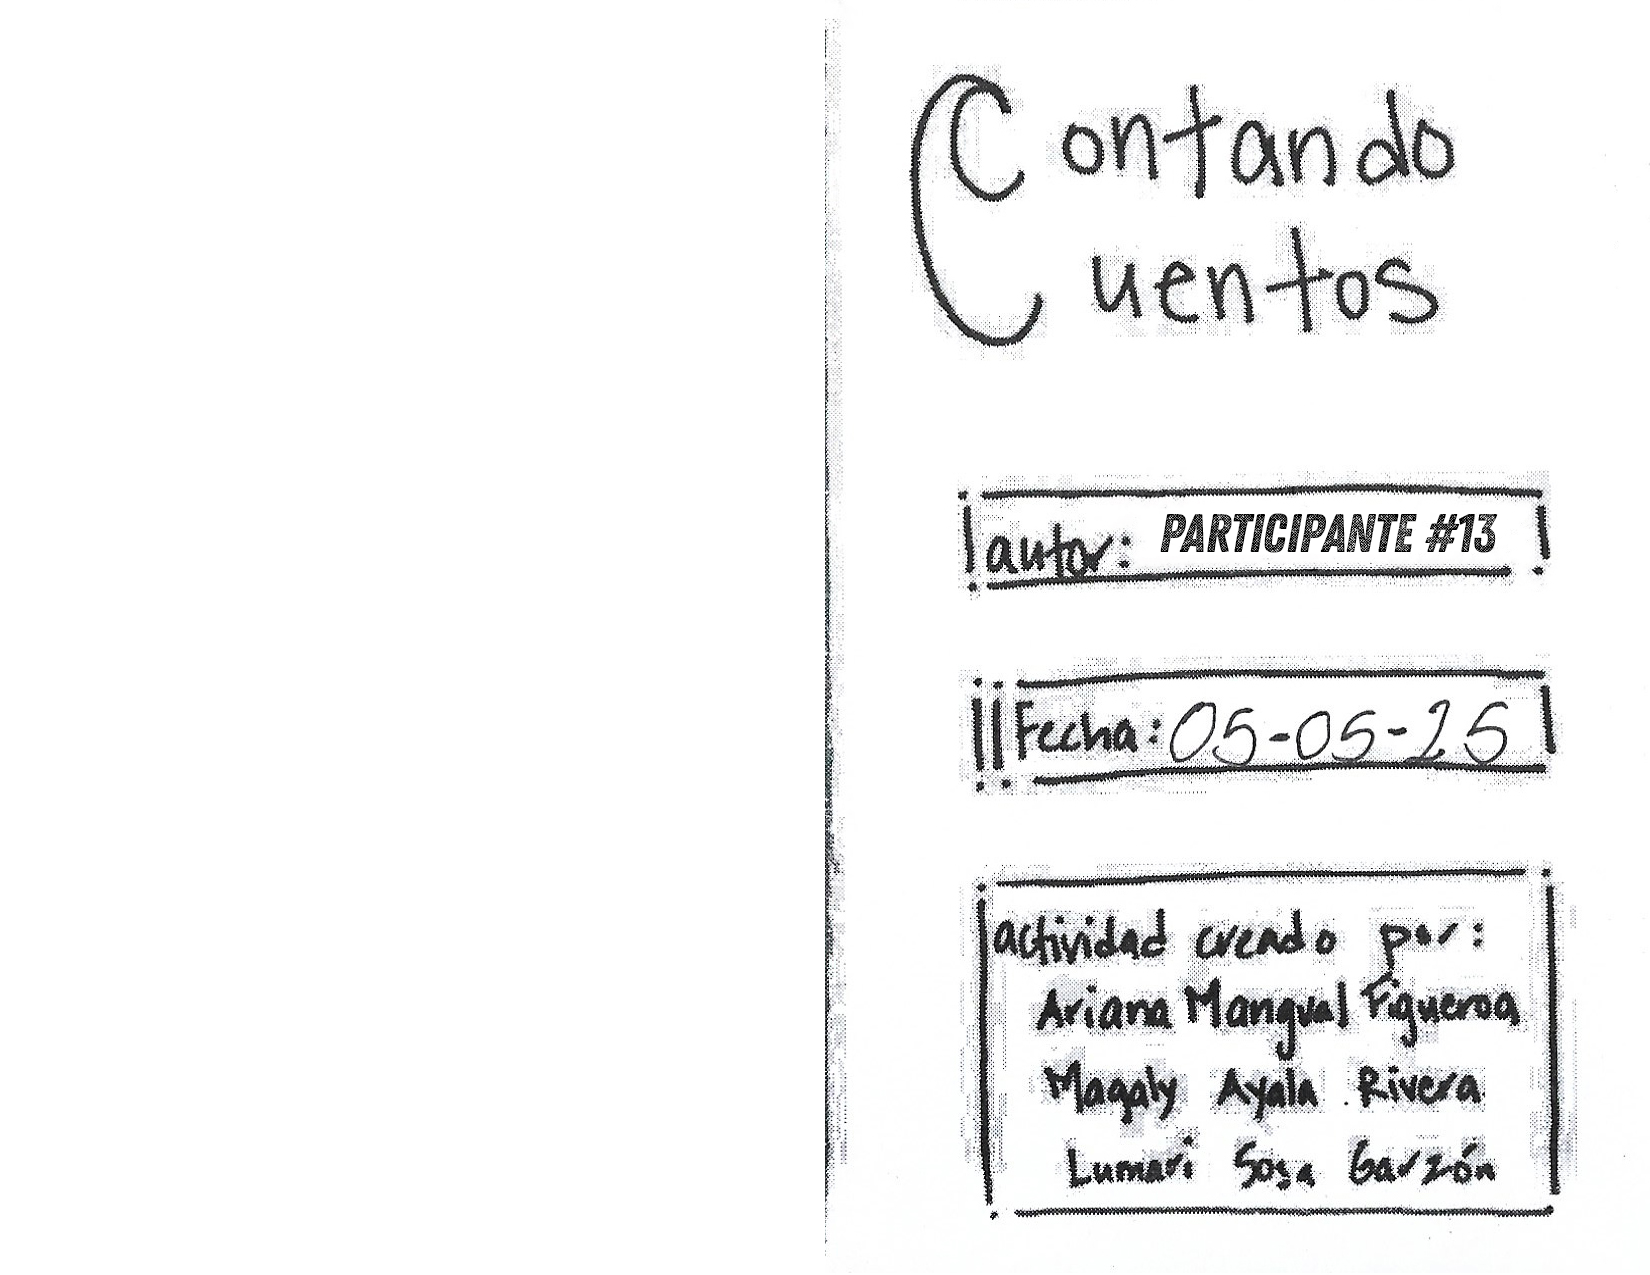 Contando
Cuentos
autor: PARTICIPANTE #13
Fecha: 05-05-25
actividad creado por:
Ariana Mangual Figueroa
Magaly Ayala Rivera
Lumari Sosa Garzón